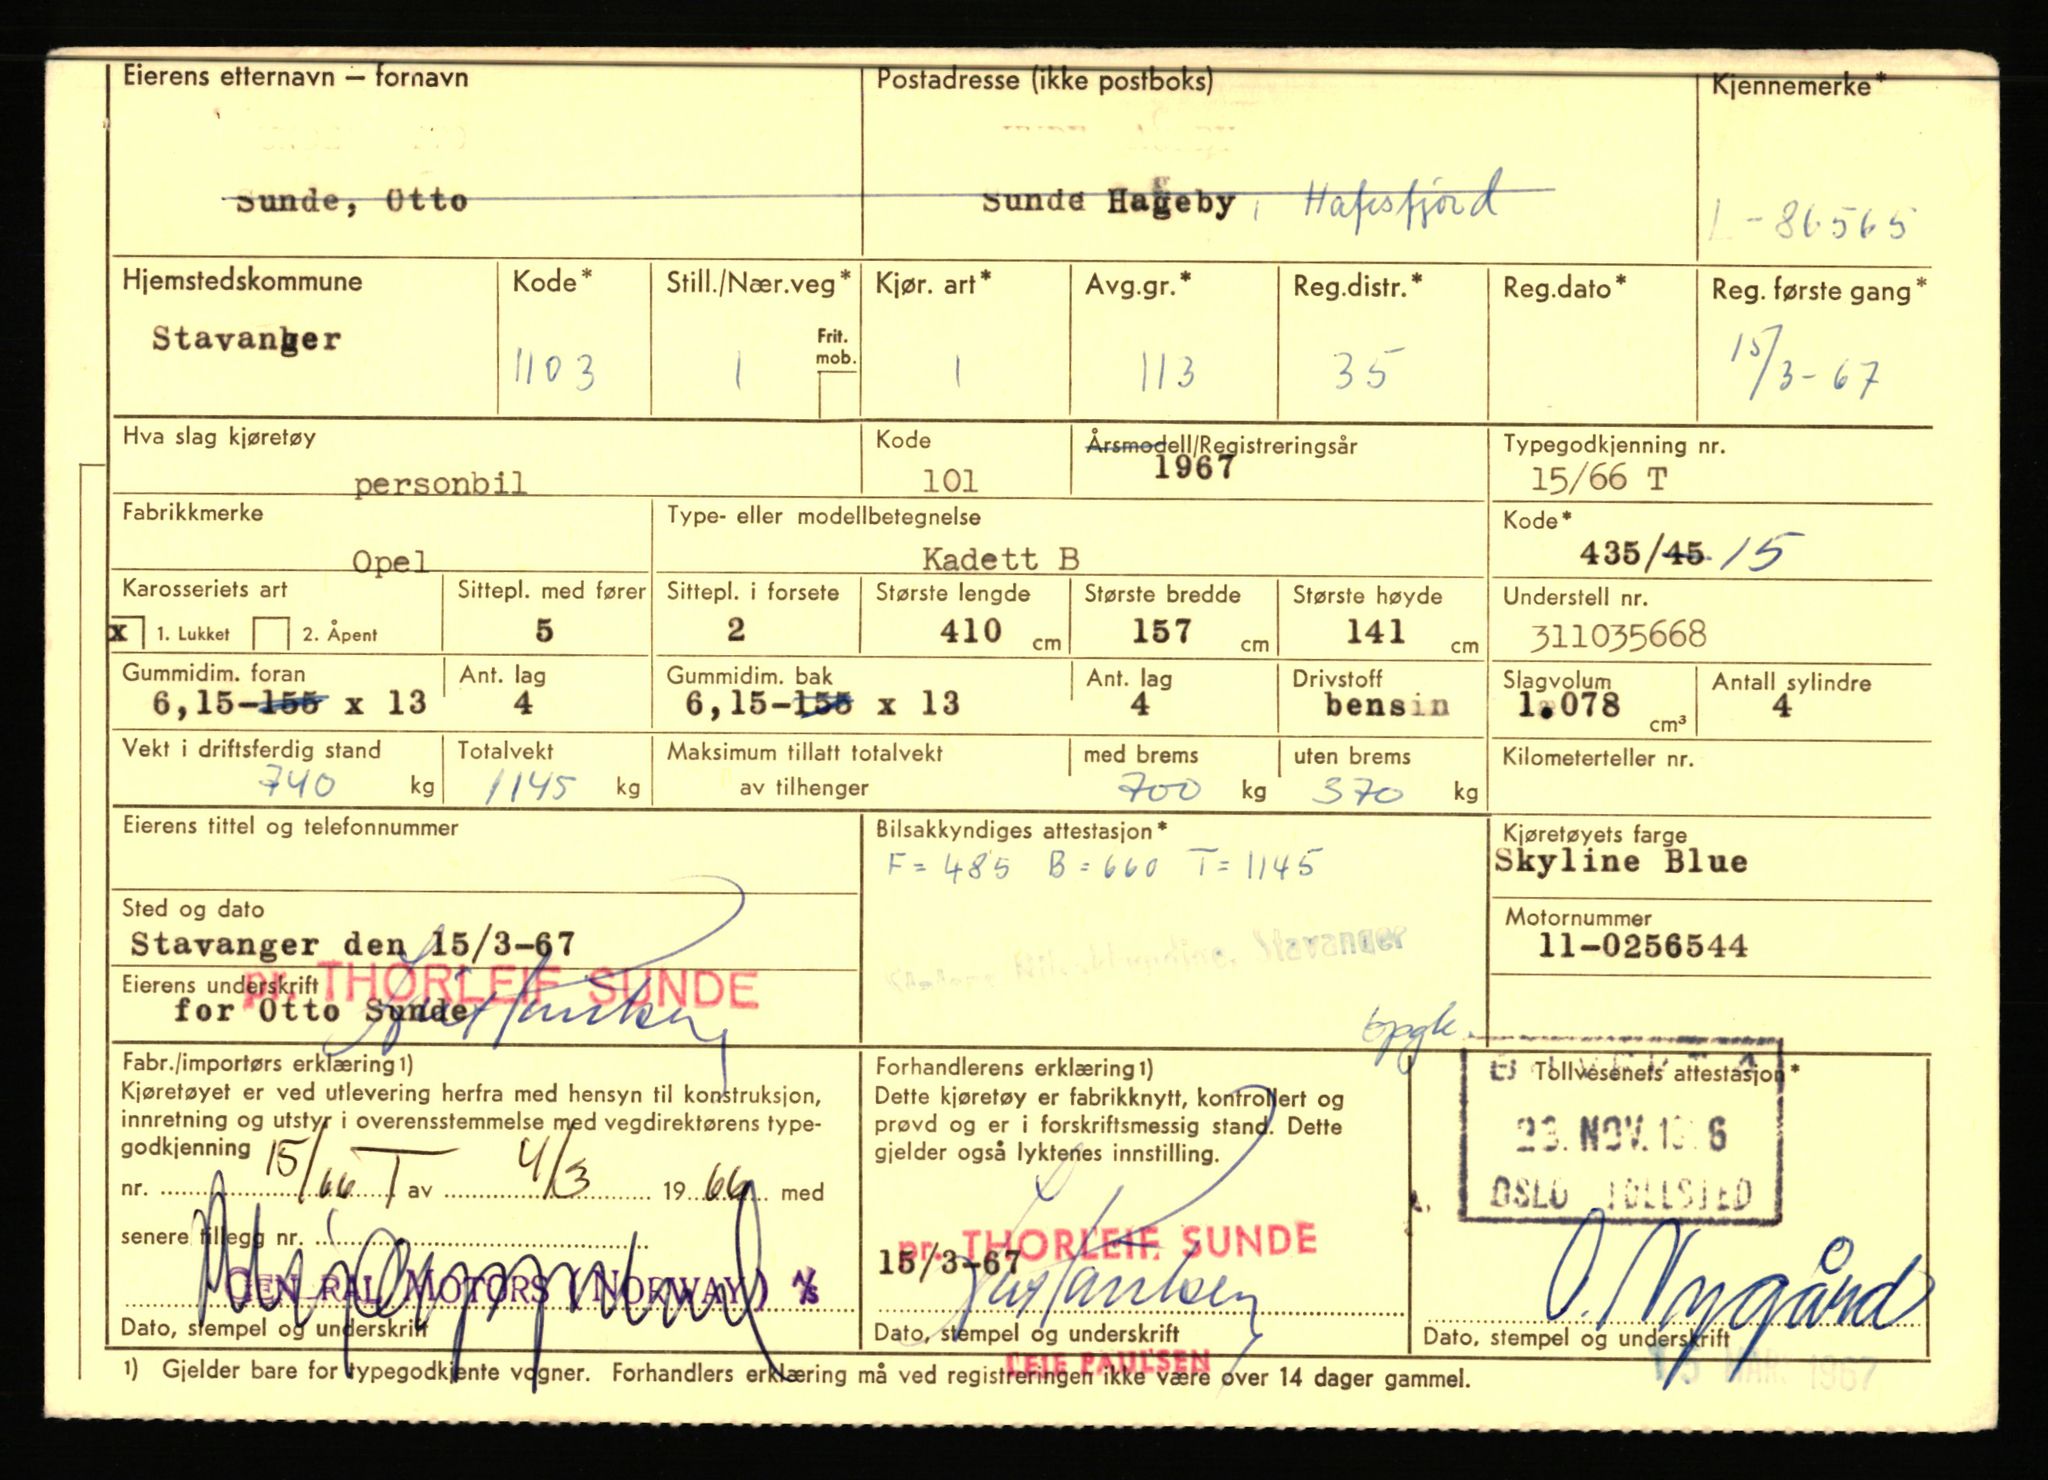 Eierens etternavn – fornavn
Sunde, Otto
Postadresse (ikke postboks)
Sunde Hageby, Hafrsfjord
Kjennemerke*
L-86565
Hjemstedskommune
Stavanger
Kode*
1103
Still./Nær.veg*
Frit. mob.
1
Kjør. art*
1
Avg.gr.*
113
Reg.distr.*
35
Reg.dato*
Reg. første gang*
15/3-67
Hva slag kjøretøy
personbil
Kode
101
Årsmodell/Registreringsår
1967
Typegodkjenning nr.
15/66 T
Fabrikkmerke
Opel
Type- eller modellbetegnelse
Kadett B
Kode*
435/45 15
Karosseriets art
x 1. Lukket 2. Åpent
Sittepl. med fører
5
Sittepl. i forsete
2
Største lengde
410 cm
Største bredde
157 cm
Største høyde
141 cm
Understell nr.
311035668
Gummidim. foran
6,15-155 x 13
Ant. lag
4
Gummidim. bak
6,15-155 x 13
Ant. lag
4
Drivstoff
bensin
Slagvolum
1.078 cm³
Antall sylindre
4
Vekt i driftsferdig stand
740 kg
Totalvekt
1145 kg
Maksimum tillatt totalvekt
av tilhenger
med brems
700 kg
uten brems
370 kg
Kilometerteller nr.
Eierens tittel og telefonnummer
Bilsakkyndiges attestasjon*
F = 485 B = 660 T = 1145
Stavanger
Kjøretøyets farge
Skyline Blue
Sted og dato
Stavanger den 15/3-67
Motornummer
11-0256544
Eierens underskrift
pr. THORLEIF SUNDE
for Otto Sunde
Fabr./importørs erklæring1)
Kjøretøyet er ved utlevering herfra med hensyn til konstruksjon,
innretning og utstyr i overensstemmelse med vegdirektørens type-
godkjenning
nr. 15/66 T av 4/3 1966 med
senere tillegg nr.
GENERAL MOTORS (NORWAY) A/S
Dato, stempel og underskrift
Forhandlerens erklæring1)
Dette kjøretøy er fabrikknytt, kontrollert og
prøvd og er i forskriftsmessig stand. Dette
gjelder også lyktenes innstilling.
pr. THORLEIF SUNDE
15/3-67
Leif Paulsen
Dato, stempel og underskrift
LEIF PAULSEN
Tollvesenets attestasjon*
23. NOV. 1966
OSLO TOLLSTED
O. Nygård
Dato, stempel og underskrift
15 MAR. 1967
1) Gjelder bare for typegodkjente vogner. Forhandlers erklæring må ved registreringen ikke være over 14 dager gammel.